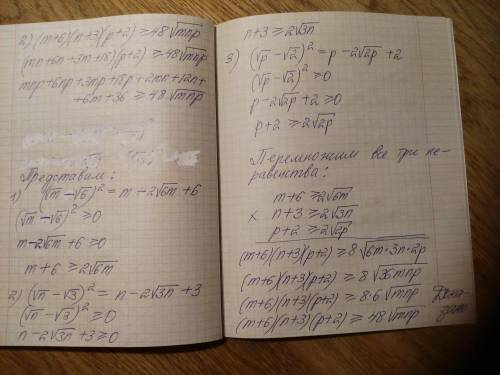 2) (m+6)(n+3)(p+2) ≥ 48√mnp
(mn+6n+3m+18)(p+2) ≥ 48√mnp
mnp+6np+3mp+18p+2mn+12n+
+6m+36 ≥ 48√mnp
Представим:
1) (√m-√6)² = m-2√6m+6
(√m-√6)² ≥ 0
m-2√6m+6 ≥ 0
m+6 ≥ 2√6m
2) (√n-√3)² = n-2√3n+3
(√n-√3)² ≥ 0
n-2√3n+3 ≥ 0
n+3 ≥ 2√3n
3) (√p-√2)² = p-2√2p+2
(√p-√2)² ≥ 0
p-2√2p+2 ≥ 0
p+2 ≥ 2√2p
Перемножим все три не-
равенства:
m+6 ≥ 2√6m
× n+3 ≥ 2√3n
p+2 ≥ 2√2p
(m+6)(n+3)(p+2) ≥ 8√6m·3n·2p
(m+6)(n+3)(p+2) ≥ 8√36mnp
(m+6)(n+3)(p+2) ≥ 8·6√mnp
(m+6)(n+3)(p+2) ≥ 48√mnp
Дока-
зано